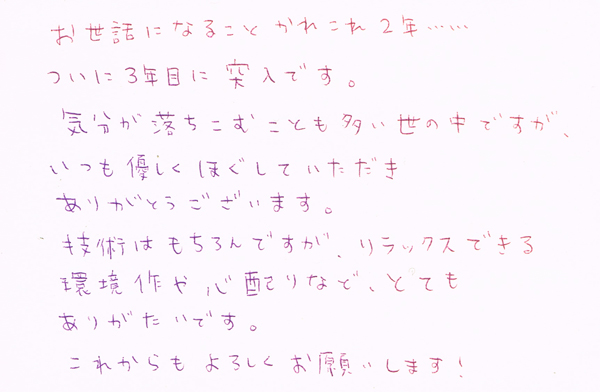 お世話になること かれこれ 2年……
ついに 3年目に 突入です。
気分が 落ちこむことも 多い世の中ですが、
いつも 優しく ほぐして いただき
ありがとうございます。
技術は もちろんですが、リラックスできる
環境作や 心配りなど、とても
ありがたいです。
これからも よろしく お願いします!